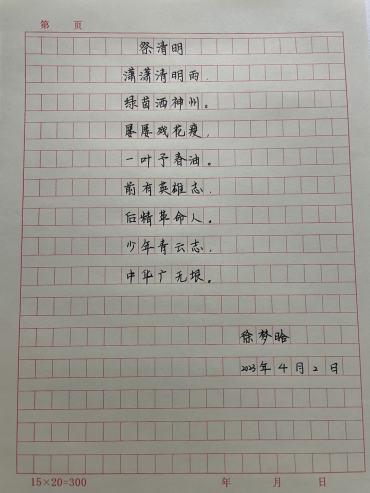 第 页
祭清明
潇潇清明雨,
绿茵洒神州。
屡屡残花瘦,
一叶予春油。
前有英雄志,
后精革命人。
少年青云志,
中华广无垠。
徐梦晗
2023年4月2日
15×20=300 年 月 日